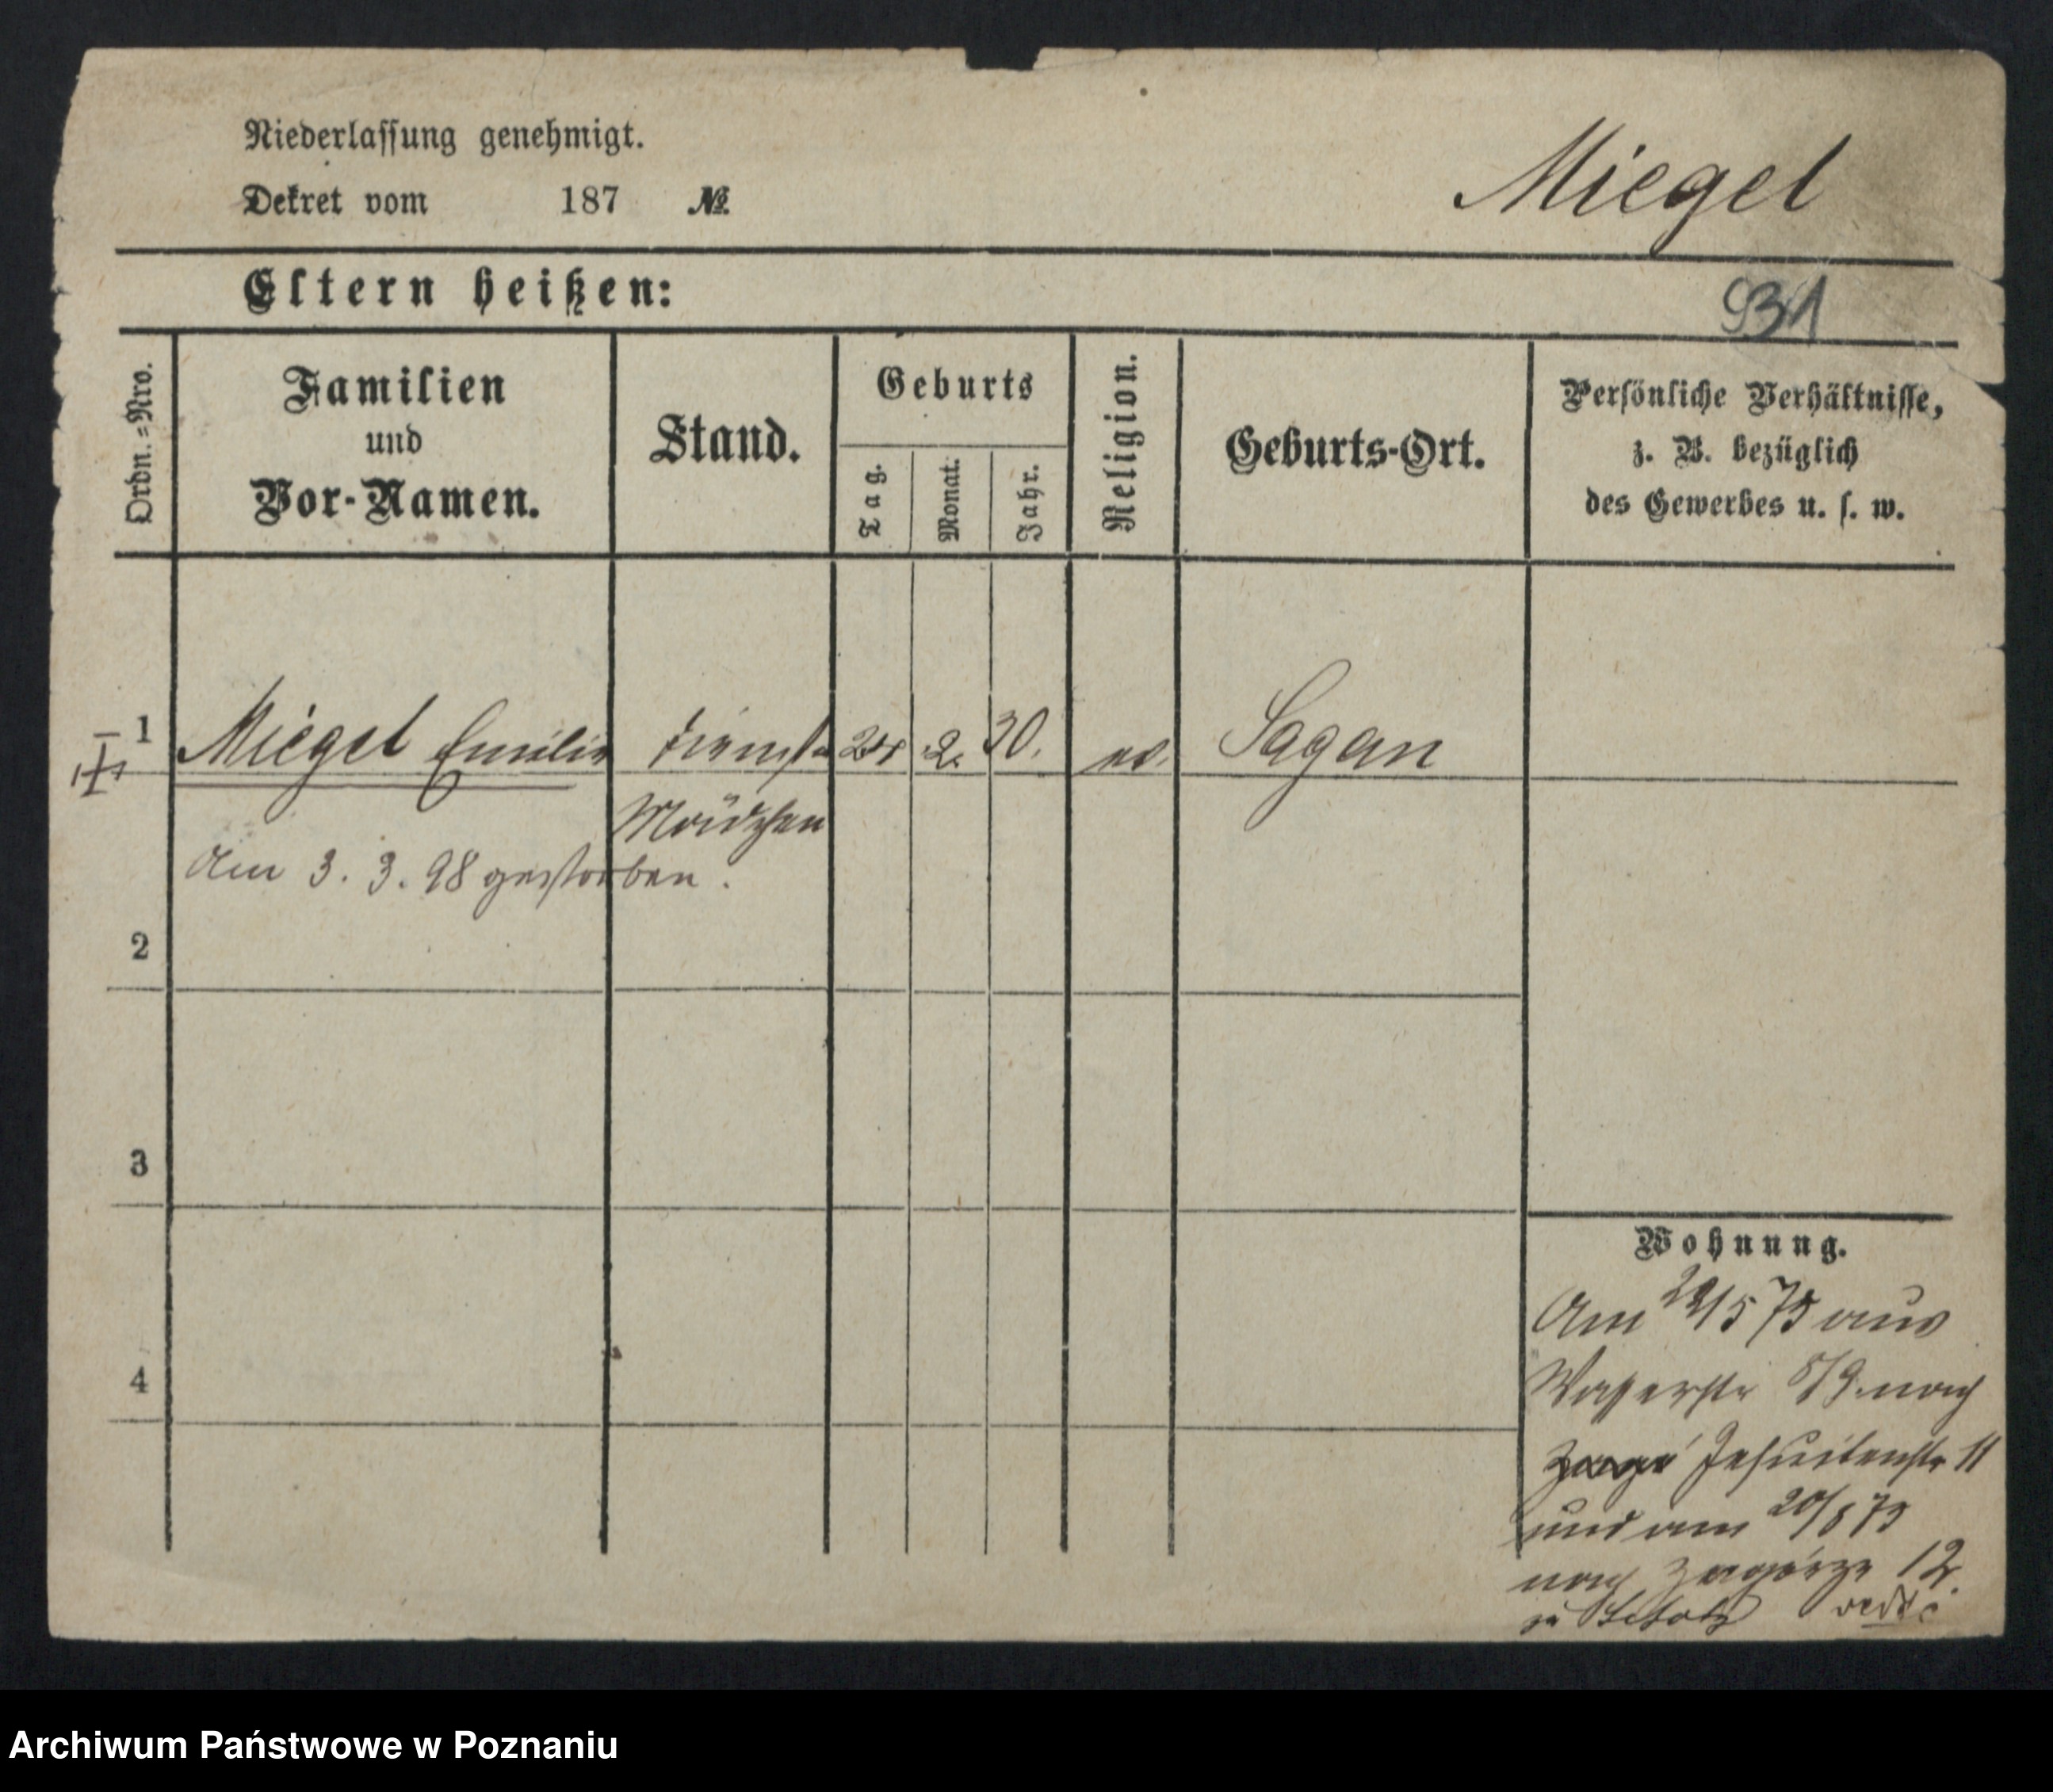 Niederlassung genehmigt.
Dekret vom 187 №
Miegel
Eltern heißen:
931
Ordn.=Nro.
Familien
und
Vor-Namen.
Stand.
Geburts
Tag.
Monat.
Jahr.
Religion.
Geburts-Ort.
Persönliche Verhältnisse,
z. B. bezüglich
des Gewerbes u. s. w.
1 Miegel Emilie Dienst 2. 30. ev. Sagan
Mädchen
Am 3. 3. 98 gestorben.
2
3
4
Wohnung.
Am /5 75 aus
Wasserstr 8/9 nach
Jesuitenstr 11
und am 20/8 75
nach Zagórze 12.
zu Scholz
Archiwum Państwowe w Poznaniu